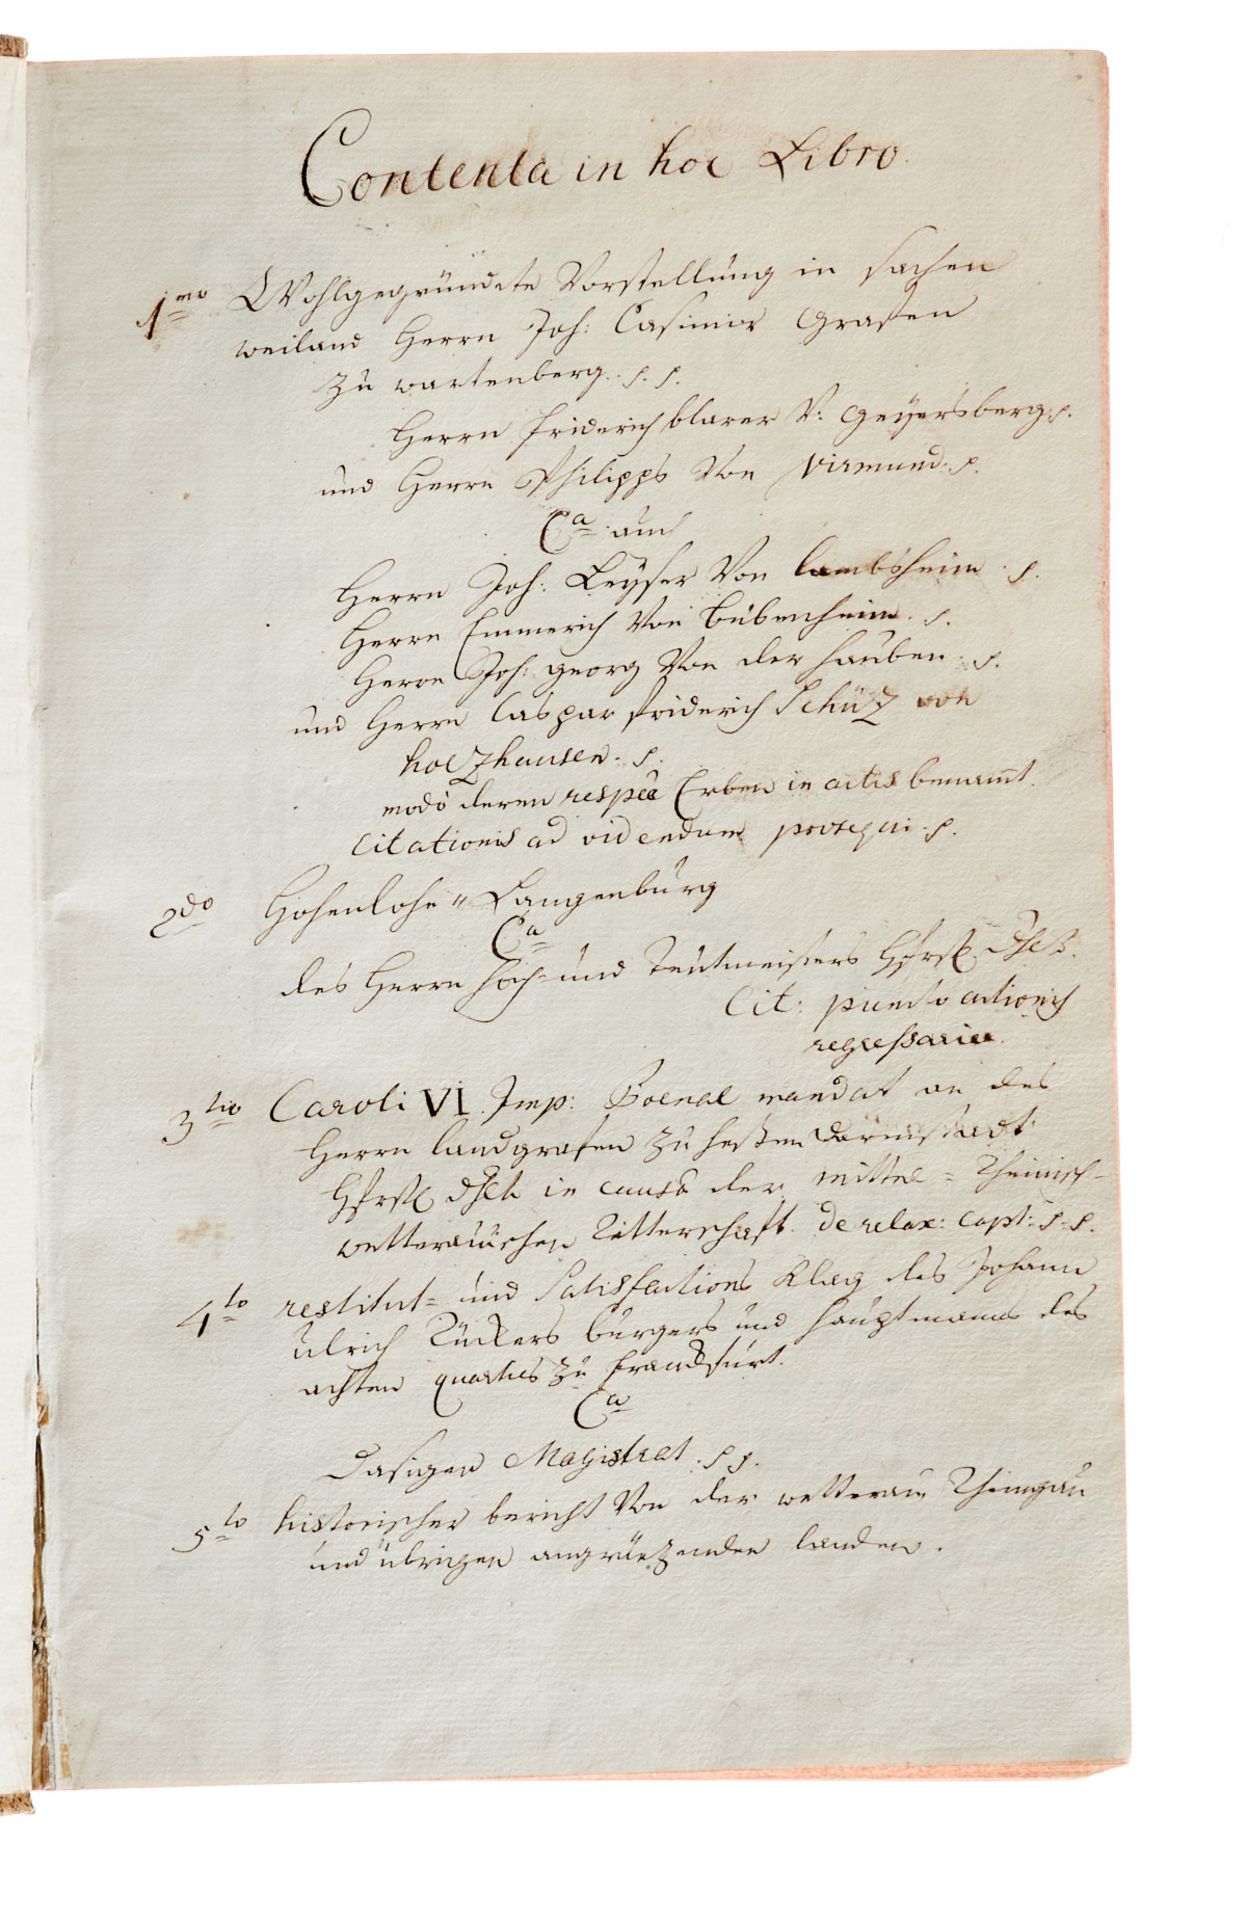 Contenta in hoc Libro.
1mo Wohlgegründete Vorstellung in sachen
weiland Herrn Joh: Casimir Grafen
zu wartenberg. p. p.
Herrn friderich blarer V: Geÿersberg. p.
und Herrn Philipps Von Virmund. p.
Ca auch
Herrn Joh: Leyser Von lambsheim. p.
Herrn Emmerich Von bübenheim. p.
Herrn Joh: georg Von der hauben. p.
und Herrn Caspar friderich Schüz von
holzhausen. p.
modò deren Erben in actis benamt.
Citationis ad videndum prosequi. p.
2do Hohenlohe „ Langenburg
Ca
des Herrn hoch- und Teutmeisters
Cit: puncto actionis
regressariae.
3tio Caroli VI. Imp: Poenal mandat an des
Herrn landgrafen zu heßen darmstadt
in causa der mittel = Rheinisch-
wetterauischen Ritterschaft. de relax: capt: p. p.
4to restitut= und Satisfactions Klag des Johann
ulrich Rückers bürgers und hauptmanns des
achten quartiers zu franckfurt.
Ca
dasigen Magistrat. p p.
5to historischer bericht Von der wetterau Rheingau
und übrigen angränzenden landen.